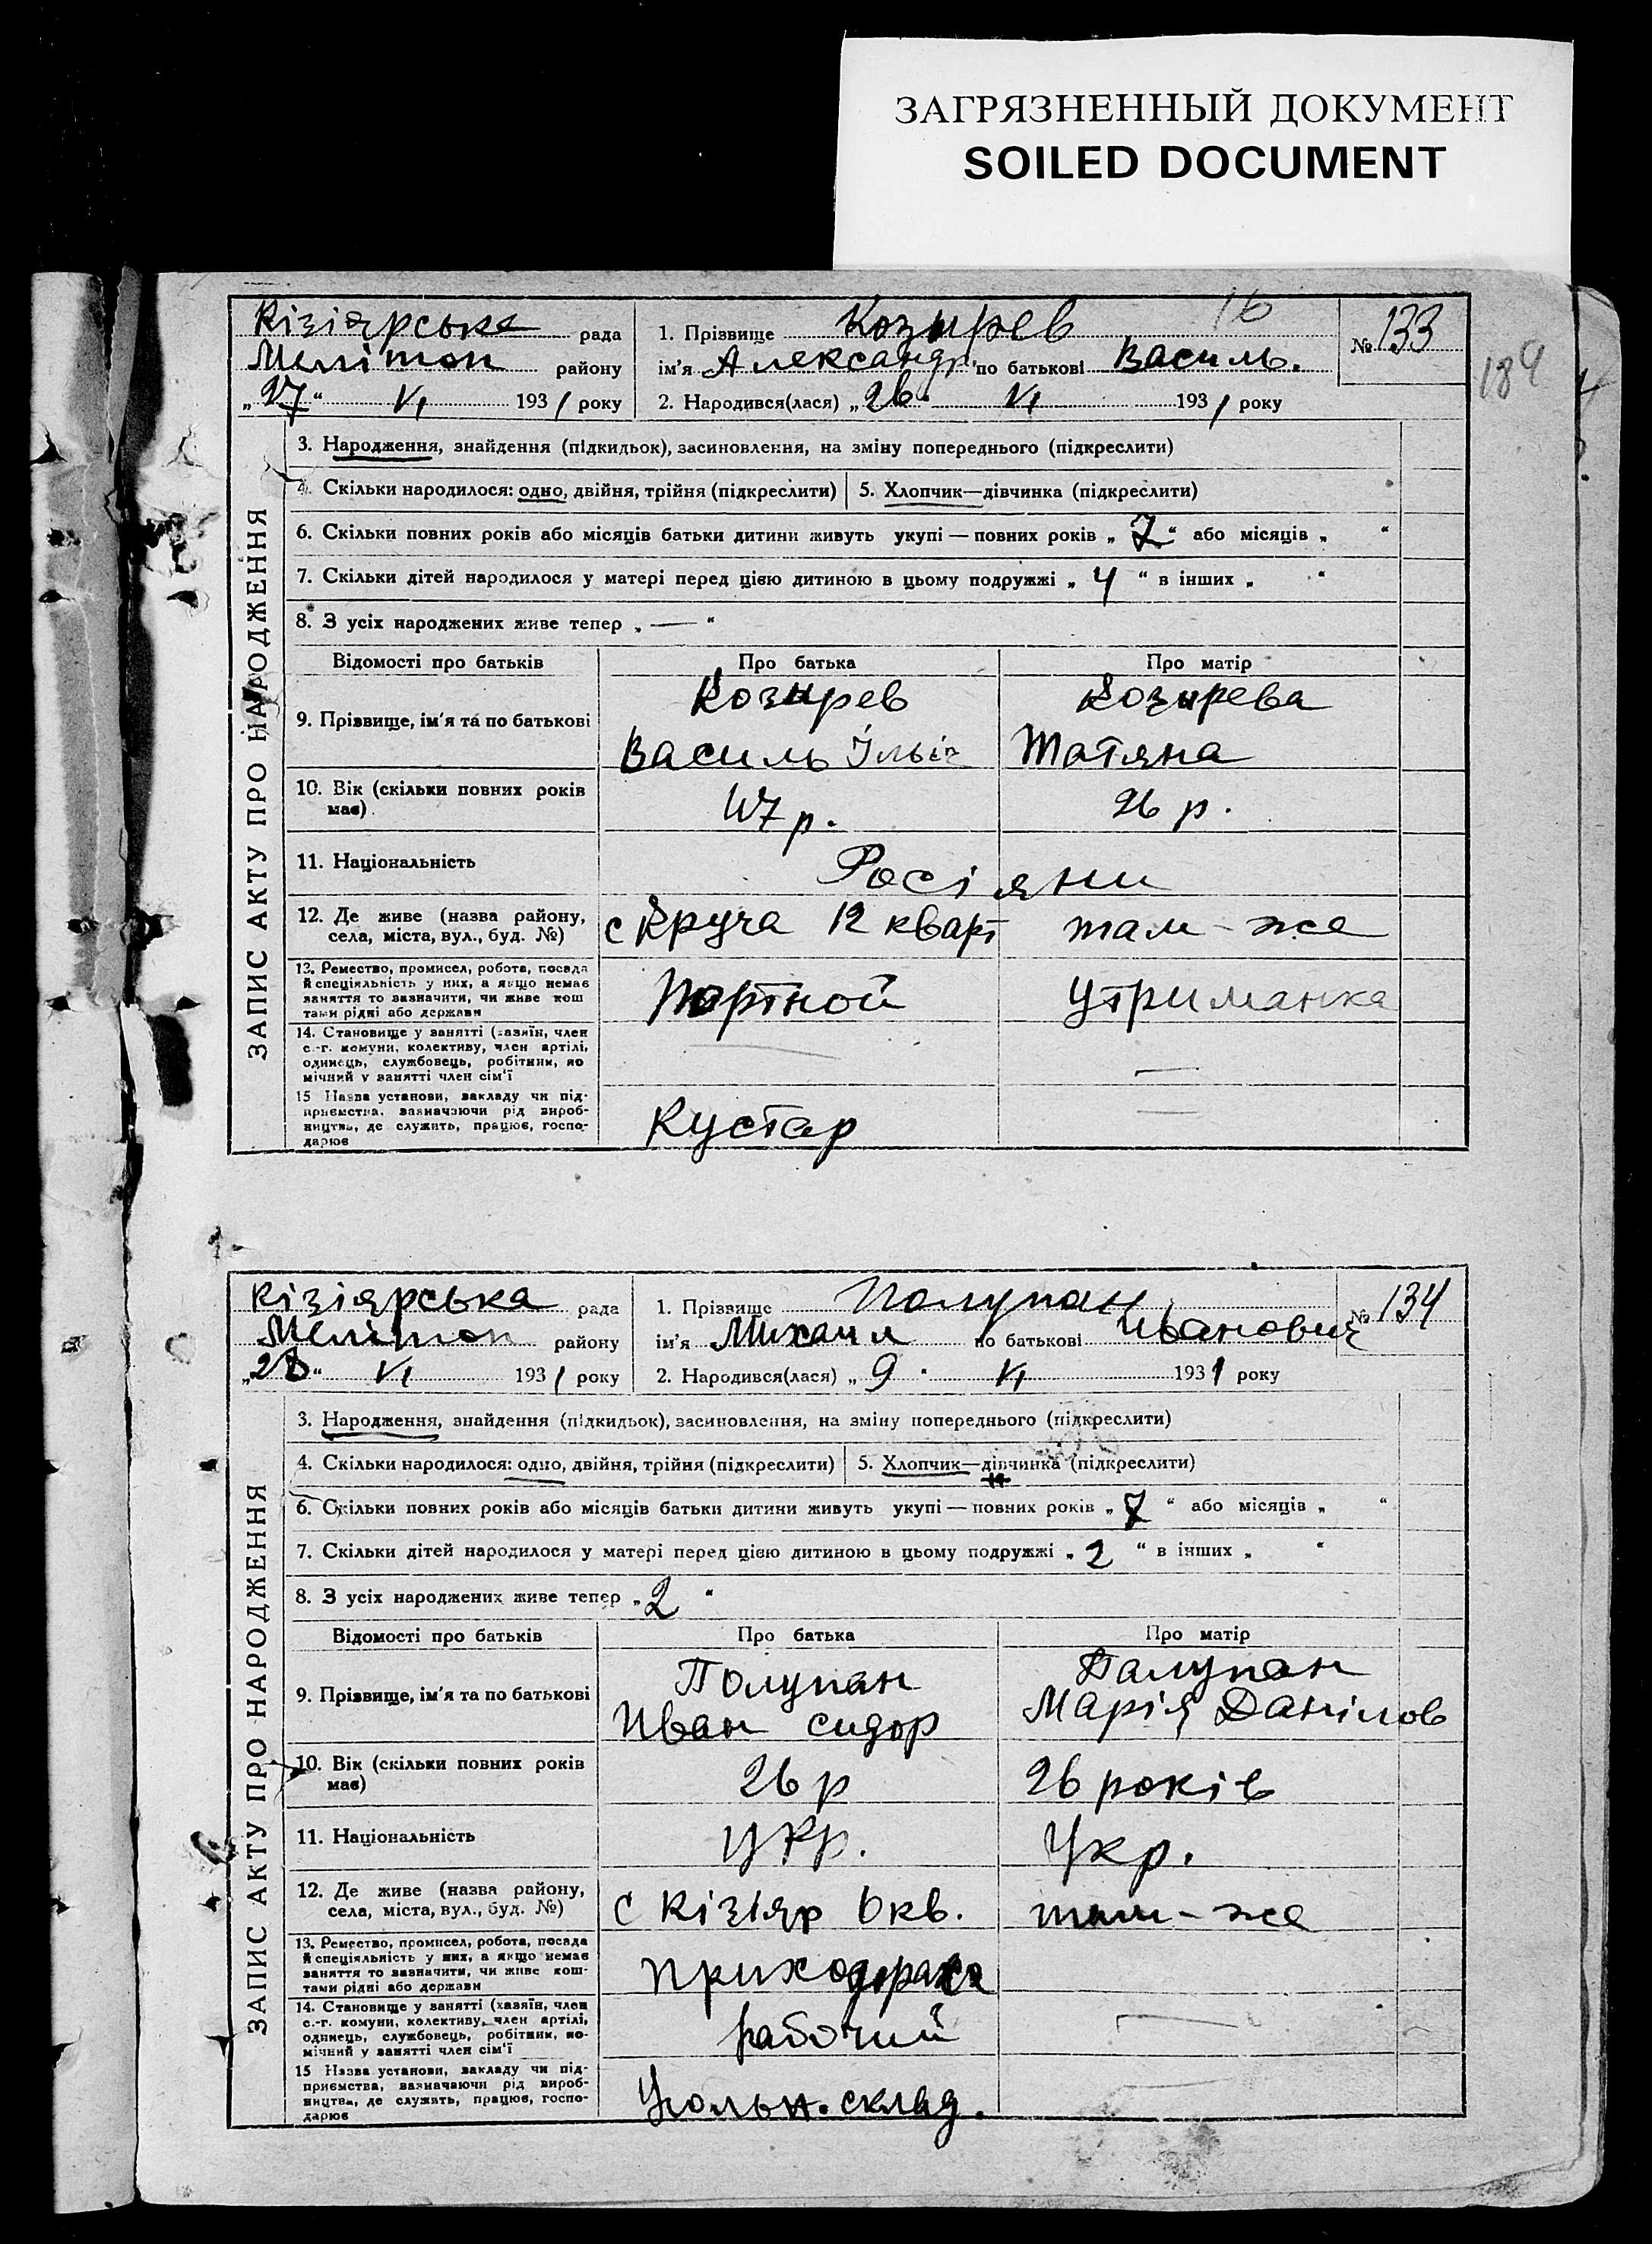 ЗАГРЯЗНЕННЫЙ ДОКУМЕНТ
SOILED DOCUMENT
16
184
ЗАПИС АКТУ ПРО НАРОДЖЕННЯ
Кізіярська рада
Мелітоп району
„27“ VI 1931 року
1. Прізвище Козирев
ім'я Александр по батькові Василь.
№ 133
2. Народився(лася) „26“ VI 1931 року
3. Народження, знайдення (підкидьок), засиновлення, на зміну попереднього (підкреслити)
4. Скільки народилося: одно, двійня, трійня (підкреслити) 5. Хлопчик—дівчинка (підкреслити)
6. Скільки повних років або місяців батьки дитини живуть укупі — повних років „7“ або місяців „ “
7. Скільки дітей народилося у матері перед цією дитиною в цьому подружжі „4“ в інших „ “
8. З усіх народжених живе тепер „—“
Відомості про батьків Про батька Про матір
9. Прізвище, ім'я та по батькові
Козирев Козырева
Василь Ільіч Татяна
10. Вік (скільки повних років має)
47 р. 26 р.
11. Національність
Росіяни
12. Де живе (назва району, села, міста, вул., буд. №)
с Круча 12 кварт там-же
13. Ремество, промисел, робота, посада
й спеціяльність у них, а якщо немає
заняття то зазначити, чи живе кош
тами рідні або держави
Портной Утриманка
14. Становище у занятті (хазяїн, член
с.-г. комуни, колективу, член артілі,
одинець, службовець, робітник, по
мічний у занятті член сім'ї
— —
15 Назва установи, закладу чи під-
приємства, зазначаючи рід вироб-
ництва, де служить, працює, госпо-
дарює
Кустар —
ЗАПИС АКТУ ПРО НАРОДЖЕННЯ
Кізіярська рада
Мелітоп району
„28“ VI 1931 року
1. Прізвище Полупан
ім'я Михаил по батькові Иванович
№ 134
2. Народився(лася) „9“ VI 1931 року
3. Народження, знайдення (підкидьок), засиновлення, на зміну попереднього (підкреслити)
4. Скільки народилося: одно, двійня, трійня (підкреслити) 5. Хлопчик—дівчинка (підкреслити)
6. Скільки повних років або місяців батьки дитини живуть укупі — повних років „7“ або місяців „ “
7. Скільки дітей народилося у матері перед цією дитиною в цьому подружжі „2“ в інших „ “
8. З усіх народжених живе тепер „2“
Відомості про батьків Про батька Про матір
9. Прізвище, ім'я та по батькові
Полупан Палупан
Иван сидор Марія Данілов
10. Вік (скільки повних років має)
26 р 26 років
11. Національність
Укр. Укр.
12. Де живе (назва району, села, міста, вул., буд. №)
с Кізіяр 6 кв. там-же
13. Ремество, промисел, робота, посада
й спеціяльність у них, а якщо немає
заняття то зазначити, чи живе кош-
тами рідні або держави
14. Становище у занятті (хазяїн, член
с.-г. комуни, колективу, член артілі,
одинець, службовець, робітник, по-
мічний у занятті член сім'ї
рабочий —
15 Назва установи, закладу чи під-
приємства, зазначаючи рід вироб-
ництва, де служить, працює, госпо-
дарює
Угольн. склад. —